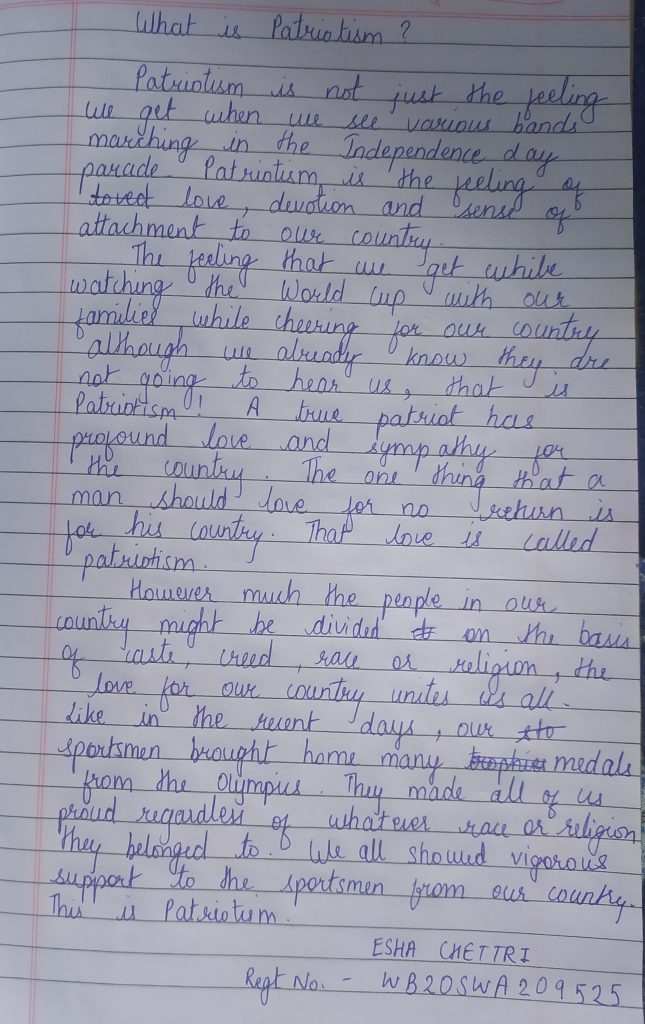 What is Patriotism ?
Patriotism is not just the feeling
we get when we see various bands
marching in the Independence day
parade. Patriotism is the feeling of
loved love, devotion and sense of
attachment to our country.
The feeling that we get while
watching the World Cup with our
families while cheering for our country
although we already know they are
not going to hear us, that is
Patriotism! A true patriot has
profound love and sympathy for
the country. The one thing that a
man should love for no return is
for his country. That love is called
patriotism.
However much the people in our
country might be divided on the basis
of caste, creed, race or religion, the
love for our country unites us all.
Like in the recent days, our
sportsmen brought home many trophies medals
from the Olympics. They made all of us
proud regardless of whatever race or religion
they belonged to. We all showed vigorous
support to the sportsmen from our country.
This is Patriotism.
ESHA CHETTRI
Regt No. - WB20SWA209525